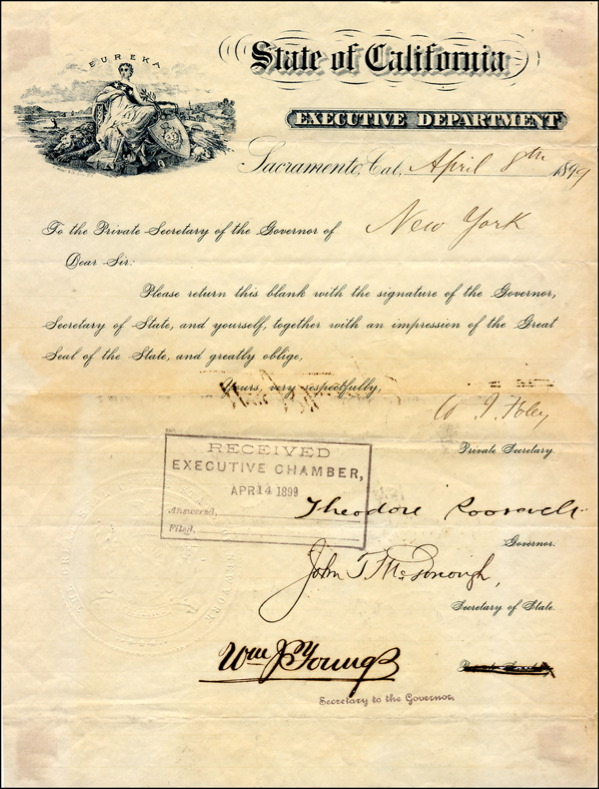 EUREKA
State of California
EXECUTIVE DEPARTMENT
Sacramento, Cal, April 8th 1899
To the Private Secretary of the Governor of New York
Dear Sir:
Please return this blank with the signature of the Governor,
Secretary of State, and yourself, together with an impression of the Great
Seal of the State, and greatly oblige,
Yours, very respectfully,
W. I. Foley
Private Secretary.
RECEIVED
EXECUTIVE CHAMBER,
APR 14 1899
Answered,
Filed,
Theodore Roosevelt
Governor.
John T. McDonough,
Secretary of State.
Wm J Youngs
Secretary to the Governor.